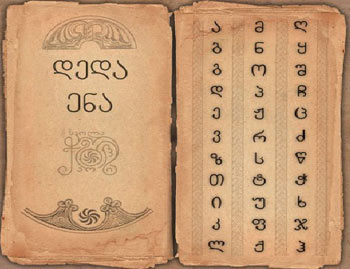 დედა
ენა
ა მ ღ
ბ ნ ყ
გ ო შ
დ პ ჩ
ე ჟ ც
ვ რ ძ
ზ ს წ
თ ტ ჭ
ი უ ხ
კ ფ ჯ
ლ ქ ჰ